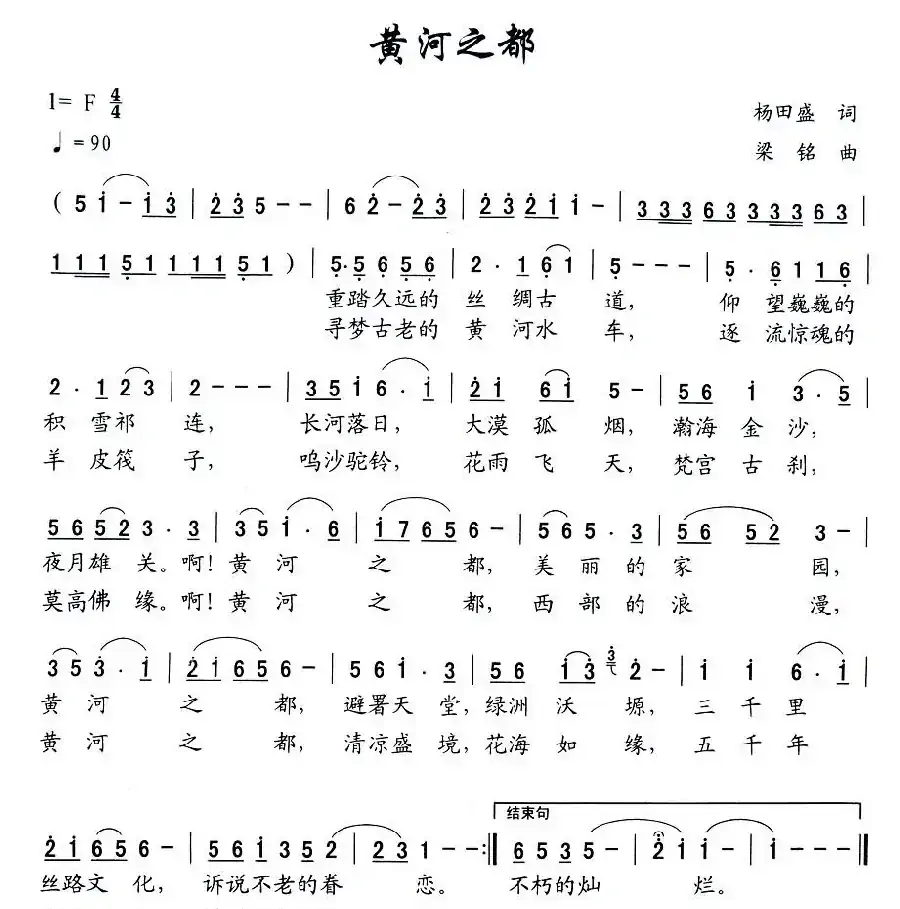 黄河之都
1= F 4/4
♩=90
杨田盛 词
梁 铭 曲
( 5 i - i 3 | 2 3 5 - - | 6 2 - 2 3 | 2 3 2 i i - | 3 3 3 6 3 3 3 3 6 3 |
1 1 1 5 1 1 1 1 5 1 ) | 5 · 5 6 5 6 | 2 · 1 6 1 | 5 - - - | 5 · 6 1 1 6 |
重踏久远的 丝 绸古 道, 仰 望巍巍的
寻梦古老的 黄 河水 车, 逐 流惊魂的
2 · 1 2 3 | 2 - - - | 3 5 i 6 · i | 2 i 6 i 5 - | 5 6 i 3 · 5 |
积 雪祁 连, 长河落日, 大漠 孤 烟, 瀚海 金 沙;
羊 皮筏 子, 呜沙驼铃, 花雨 飞 天, 梵宫 古 刹;
5 6 5 2 3 · 3 | 3 5 i · 6 | i 7 6 5 6 - | 5 6 5 · 3 | 5 6 5 2 3 - |
夜月雄 关。啊! 黄 河 之 都, 美 丽 的 家 园,
莫高佛 缘。啊! 黄 河 之 都, 西 部 的 浪 漫,
3 5 3 · i | 2 i 6 5 6 - | 5 6 i · 3 | 5 6 i 3 3 2 - | i i 6 · i |
黄 河 之 都, 避署天 堂, 绿洲 沃 塬, 三 千 里
黄 河 之 都, 清凉盛 境, 花海 如 缘, 五 千 年
2 i 6 5 6 - | 5 6 i 3 5 2 | 2 3 1 1 - - :| 结束句 6 5 3 5 - | 2 i i - | i - - - ||
丝路文 化, 诉说不老的眷 恋。 不朽的灿 烂。